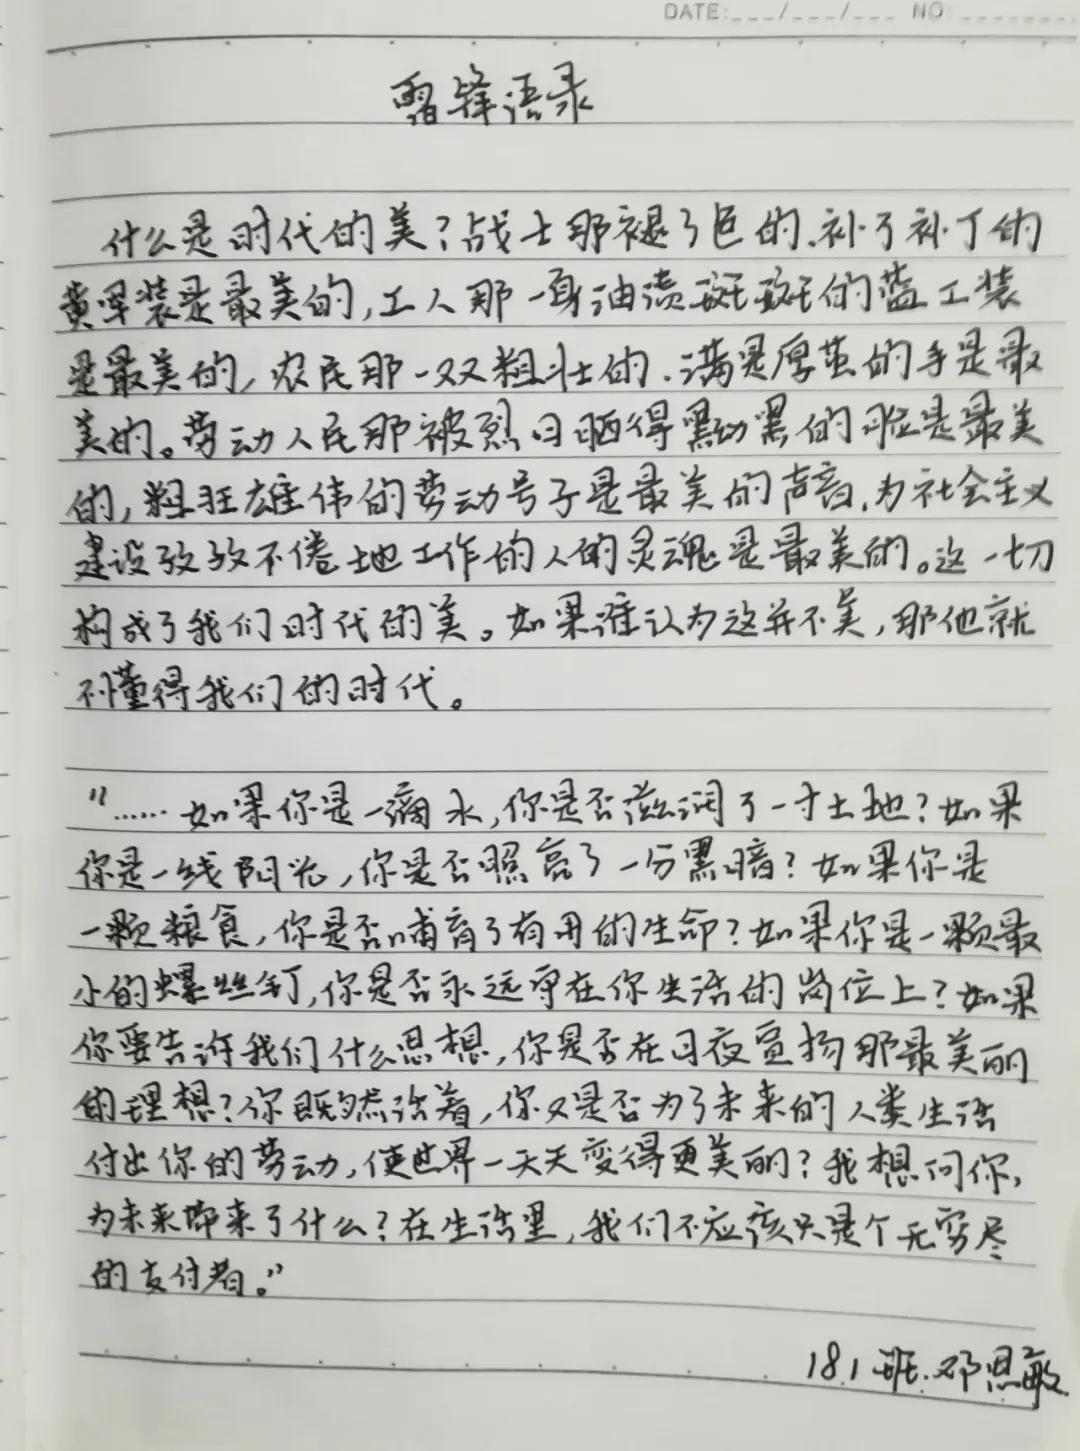 DATE:___/___/___ NO:________
雷锋语录
什么是时代的美？战士那褪了色的、补了补丁的
黄军装是最美的，工人那一身油渍斑斑的蓝工装
是最美的，农民那一双粗壮的、满是厚茧的手是最
美的。劳动人民那被烈日晒得黝黑的脸是最美
的，粗犷雄伟的劳动号子是最美的声音，为社会主义
建设孜孜不倦地工作的人的灵魂是最美的。这一切
构成了我们时代的美。如果谁认为这并不美，那他就
不懂得我们的时代。
"……如果你是一滴水，你是否滋润了一寸土地？如果
你是一线阳光，你是否照亮了一分黑暗？如果你是
一颗粮食，你是否哺育了有用的生命？如果你是一颗最
小的螺丝钉，你是否永远守在你生活的岗位上？如果
你要告诉我们什么思想，你是否在日夜宣扬那最美丽
的理想？你既然活着，你又是否为了未来的人类生活
付出你的劳动，使世界一天天变得更美丽？我想问你，
为未来带来了什么？在生活里，我们不应该只是个无穷尽
的支付者。"
181班.邓思敏